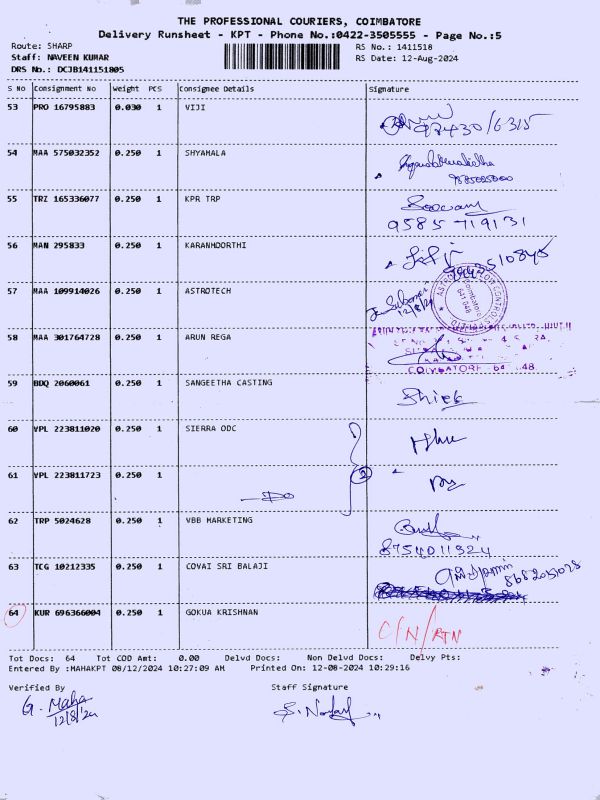 THE PROFESSIONAL COURIERS, COIMBATORE
Delivery Runsheet - KPT - Phone No.:0422-3505555 - Page No.:5
Route: SHARP
RS No.: 1411518
Staff: NAVEEN KUMAR
RS Date: 12-Aug-2024
DRS No.: DCJB141151805
S No Consignment No Weight PCS Consignee Details Signature
53 PRO 16795883 0.030 1 VIJI
54 MAA 575032352 0.250 1 SHYAMALA
55 TRZ 165336077 0.250 1 KPR TRP
9585719131
56 MAN 295833 0.250 1 KARANMOORTHI
57 MAA 109914026 0.250 1 ASTROTECH
12/8/24
58 MAA 301764728 0.250 1 ARUN REGA
59 BDQ 2060061 0.250 1 SANGEETHA CASTING
60 VPL 223811020 0.250 1 SIERRA ODC
61 VPL 223811723 0.250 1
-Do 2
62 TRP 5024628 0.250 1 VBB MARKETING
8754011924
63 TCG 10212335 0.250 1 COVAI SRI BALAJI
64 KUR 696366004 0.250 1 GOKUA KRISHNAN
C/N/RTN
Tot Docs: 64 Tot COD Amt: 0.00 Delvd Docs: Non Delvd Docs: Delvy Pts:
Entered By :MAHAKPT 08/12/2024 10:27:09 AM Printed On: 12-08-2024 10:29:16
Verified By Staff Signature
G. Maha
12/8/24